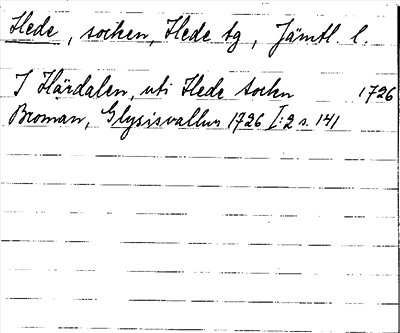 Hede, socken, Hede tg, Jämtl. l.
I Härdalen, uti Hede sockn 1726
Broman, Glysisvallur 1726 I:2 s. 141